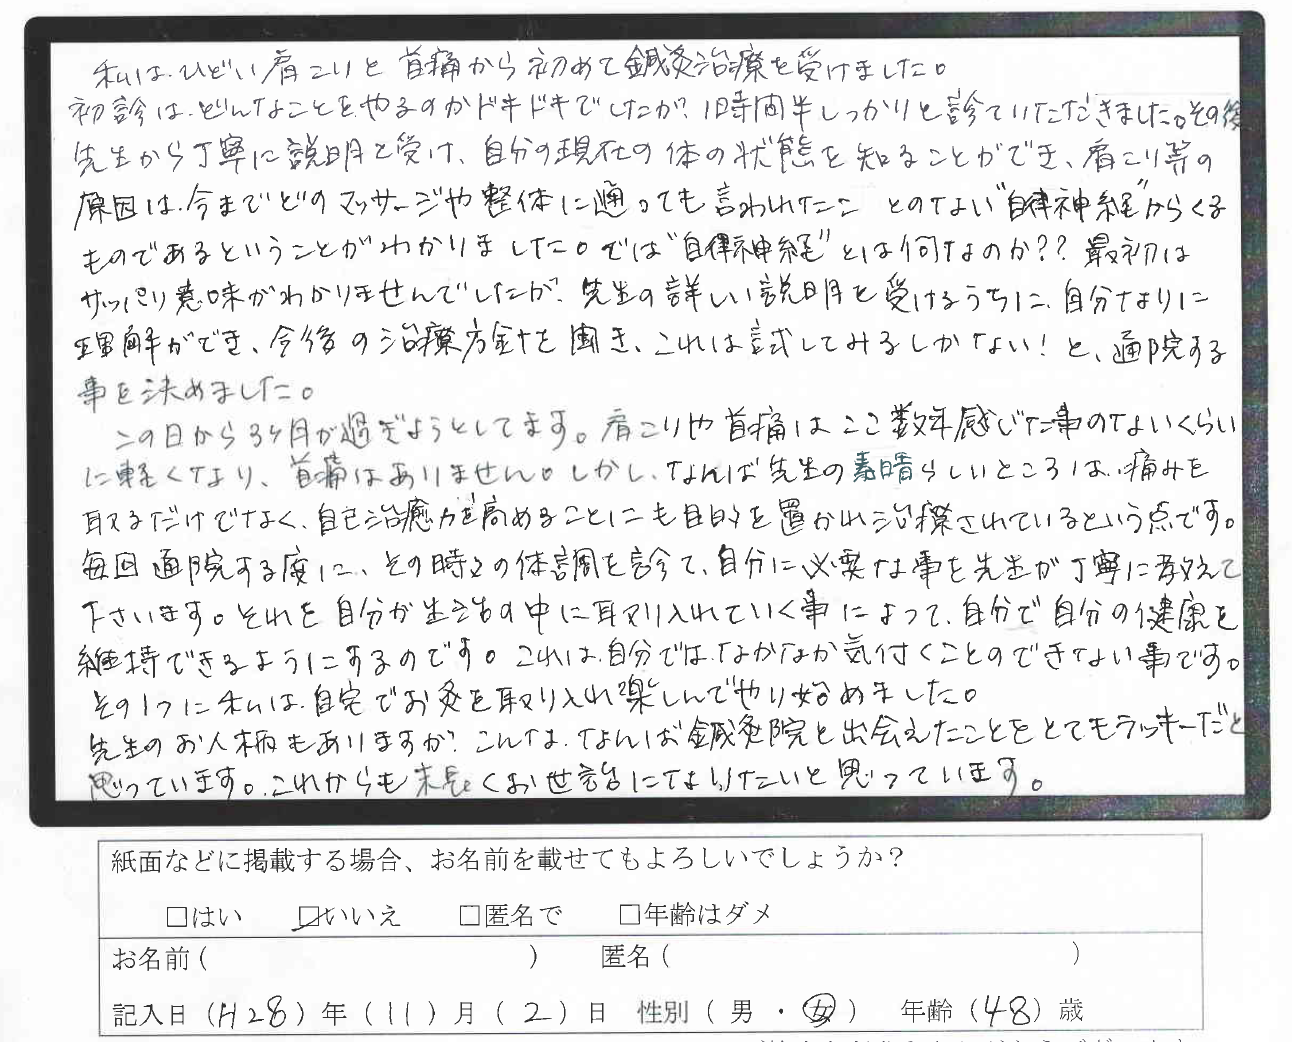 私は、ひどい肩こりと首痛から初めて鍼灸治療を受けました。
初診は、どんなことをやるのかドキドキでしたが、1時間半しっかりと診ていただきました。その後
先生から丁寧に説明を受け、自分の現在の体の状態を知ることができ、肩こり等の
原因は、今までどのマッサージや整体に通っても言われたことのない"自律神経"からくる
ものであるということがわかりました。では"自律神経"とは何なのか??最初は
サッパリ意味がわかりませんでしたが、先生の詳しい説明を受けるうちに、自分なりに
理解ができ、今後の治療方針を聞き、これは試してみるしかない!と、通院する
事を決めました。
この日から3ヶ月が過ぎようとしてます。肩こりや首痛はここ数年感じた事のないくらい
に軽くなり、首痛はありません。しかし、なんば先生の素晴らしいところは、痛みを
取るだけでなく、自己治癒力を高めることにも目的を置かれ治療されているという点です。
毎回通院する度に、その時々の体調を診て、自分に必要な事を先生が丁寧に教えて
下さいます。それを自分が生活の中に取り入れていく事によって、自分で自分の健康を
維持できるようにするのです。これは、自分では、なかなか気付くことのできない事です。
その1つに私は、自宅でお灸を取り入れ楽しんでやり始めました。
先生のお人柄もありますが、こんな、なんば鍼灸院と出会えたことをとてもラッキーだと
思っています。これからも末長くお世話になりたいと思っています。
紙面などに掲載する場合、お名前を載せてもよろしいでしょうか?
□はい ☑いいえ □匿名で □年齢はダメ
お名前( ) 匿名( )
記入日(H28)年(11)月(2)日 性別(男・女) 年齢(48)歳